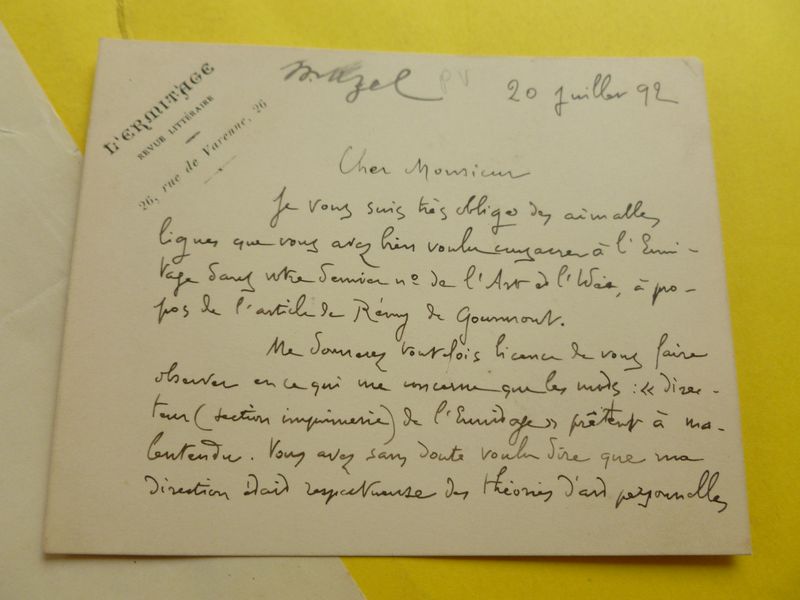 L'ERMITAGE
REVUE LITTÉRAIRE
26, rue de Varenne, 26
PV
20 juillet 92
Cher Monsieur
Je vous suis très obligé des aimables
lignes que vous avez bien voulu consacrer à l'Ermi-
tage dans votre dernier nº de l'Art et l'Idée, à pro-
pos de l'article de Rémy de Gourmont.
Me donnerez toutefois licence de vous faire
observer en ce qui me concerne que les mots : « direc-
teur (section imprimerie) de l'Ermitage » prêtent à ma-
lentendu. Vous avez sans doute voulu dire que ma
direction était respectueuse des théories d'art personnelles